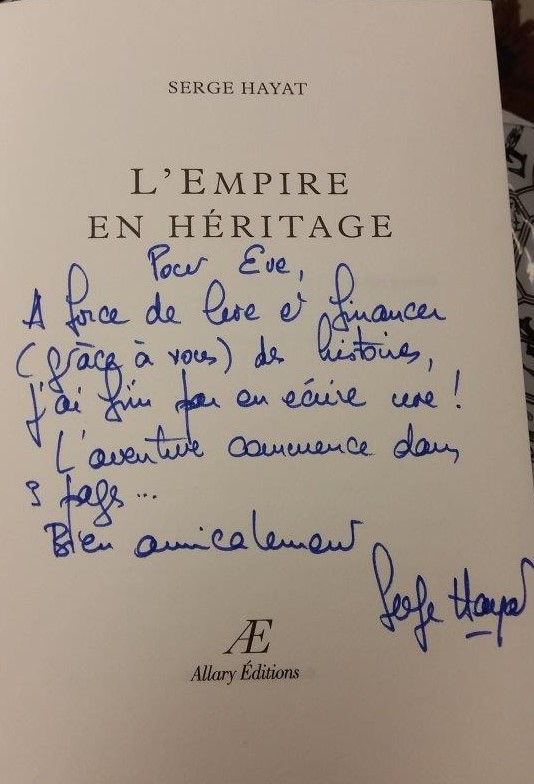 SERGE HAYAT
L'EMPIRE
EN HÉRITAGE
Pour Eve,
A force de lire et financer
(grâce à vous) des histoires,
j'ai fini par en écrire une !
L'aventure commence dans
3 pages...
Bien amicalement
Serge Hayat
Æ
Allary Éditions